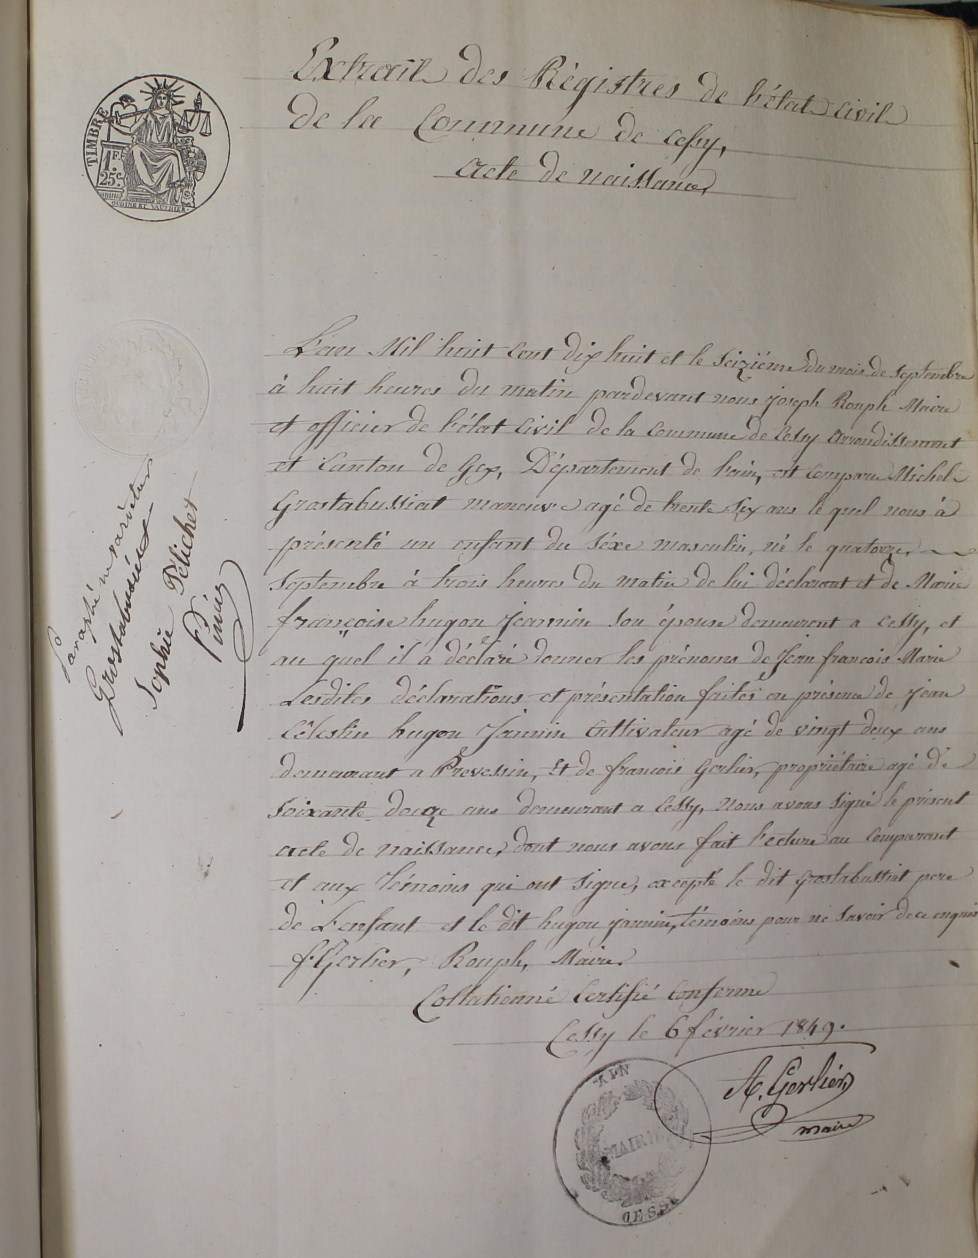 Extrait des Régistres de l'état Civil
de la Commune de Cessy,
acte de naissance,
TIMBRE
1 F.
25 c.
L'an Mil huit Cent dix huit et le Seiziéme du mois de Septembre
à huit heures du matin pardevant nous joseph Rouph Maire
et officier de l'état Civil de la Commune de Cessy arrondissement
et Canton de Gex, Département de l'ain, est Comparu Michel
Grostabussiat maneuvre agé de trente Six ans le quel nous à
présenté un enfant du Séxe masculin, né le quatorze,
Septembre à trois heures du matin de lui déclarant et de Marie
françoise hugon Jeannin Son épouse demeurant a Cessy, et
au quel il à déclaré donner les prénoms de Jean françois Marie
Lesdites déclarations et présentation faites en présence de Jean
Célestin hugon Jannin Cultivateur agé de vingt deux ans
demeurant a Prevessin, Et de françois Gerlier, propriétaire agé de
Soixante douze ans demeurant a Cessy, Nous avons signé le présent
acte de naissance, dont nous avons fait lecture au Comparant
et aux témoins qui ont signe, excepté le dit Grostabussiat pere
de L'enfant et le dit hugon jannin, témoins pour ne Savoir de ce enquis
f. Gerlier, Rouph, Maire
Collationné Certifié Conforme
Cessy le 6 février 1849.
A. Gerlier
maire
Paraphé ne varietur
Grostabussiat
Sophie Pélichet
AIN
MAIRIE
CESSY